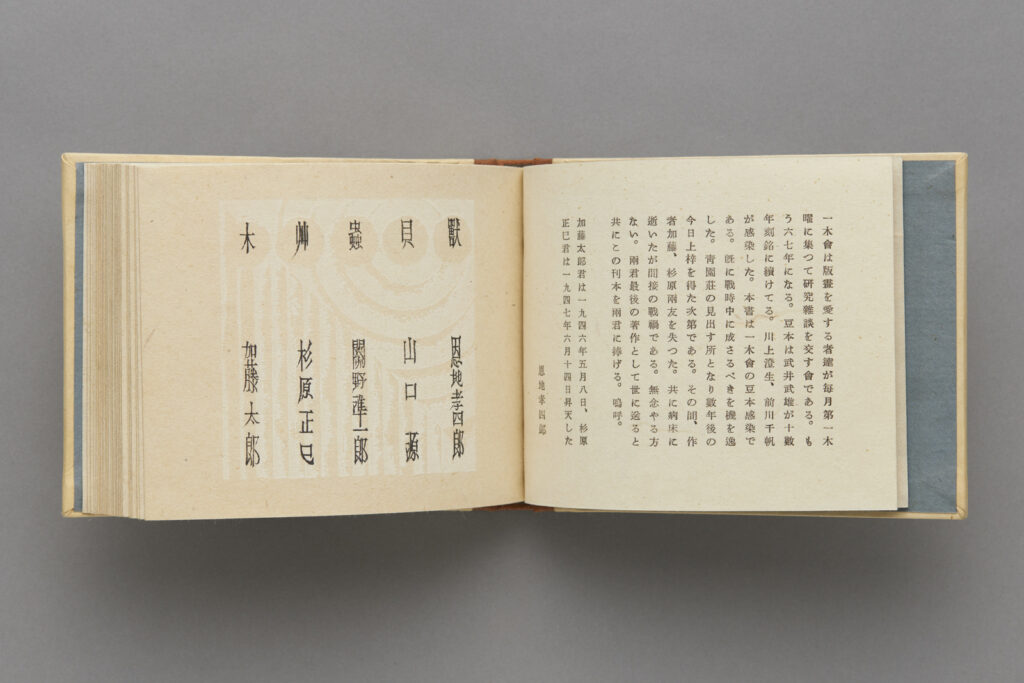 一木會は版畫を愛する者達が每月第一木
曜に集つて硏究雜談を交す會である。も
う六七年になる。豆本は武井武雄が十數
年刻銘に續けてる。川上澄生、前川千帆
が感染した。本書は一木會の豆本感染で
ある。旣に戰時中に成さるべきを機を逸
した。靑園莊の見出す所となり數年後の
今日上梓を得た次第である。その間、作
者加藤、杉原兩友を失つた。共に病床に
逝いたが間接の戰禍である。無念やる方
ない。兩君最後の著作として世に送ると
共にこの刊本を兩君に捧げる。嗚呼。
加藤太郎君は一九四六年五月八日、杉原
正巳君は一九四七年六月十四日昇天した
恩地孝四郎
獸 恩地孝四郎
貝 山口源
蟲 關野準一郎
艸 杉原正巳
木 加藤太郎